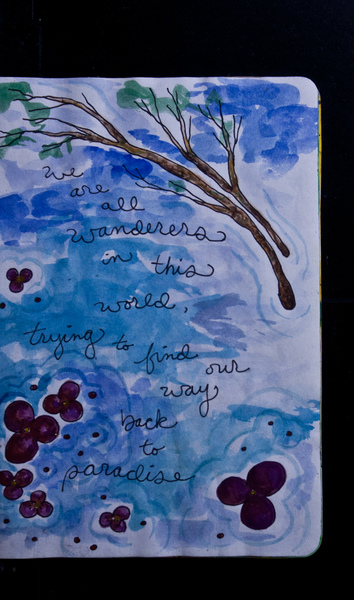 we
are
all
wanderers
in this
world,
trying to find our
way
back
to
paradise